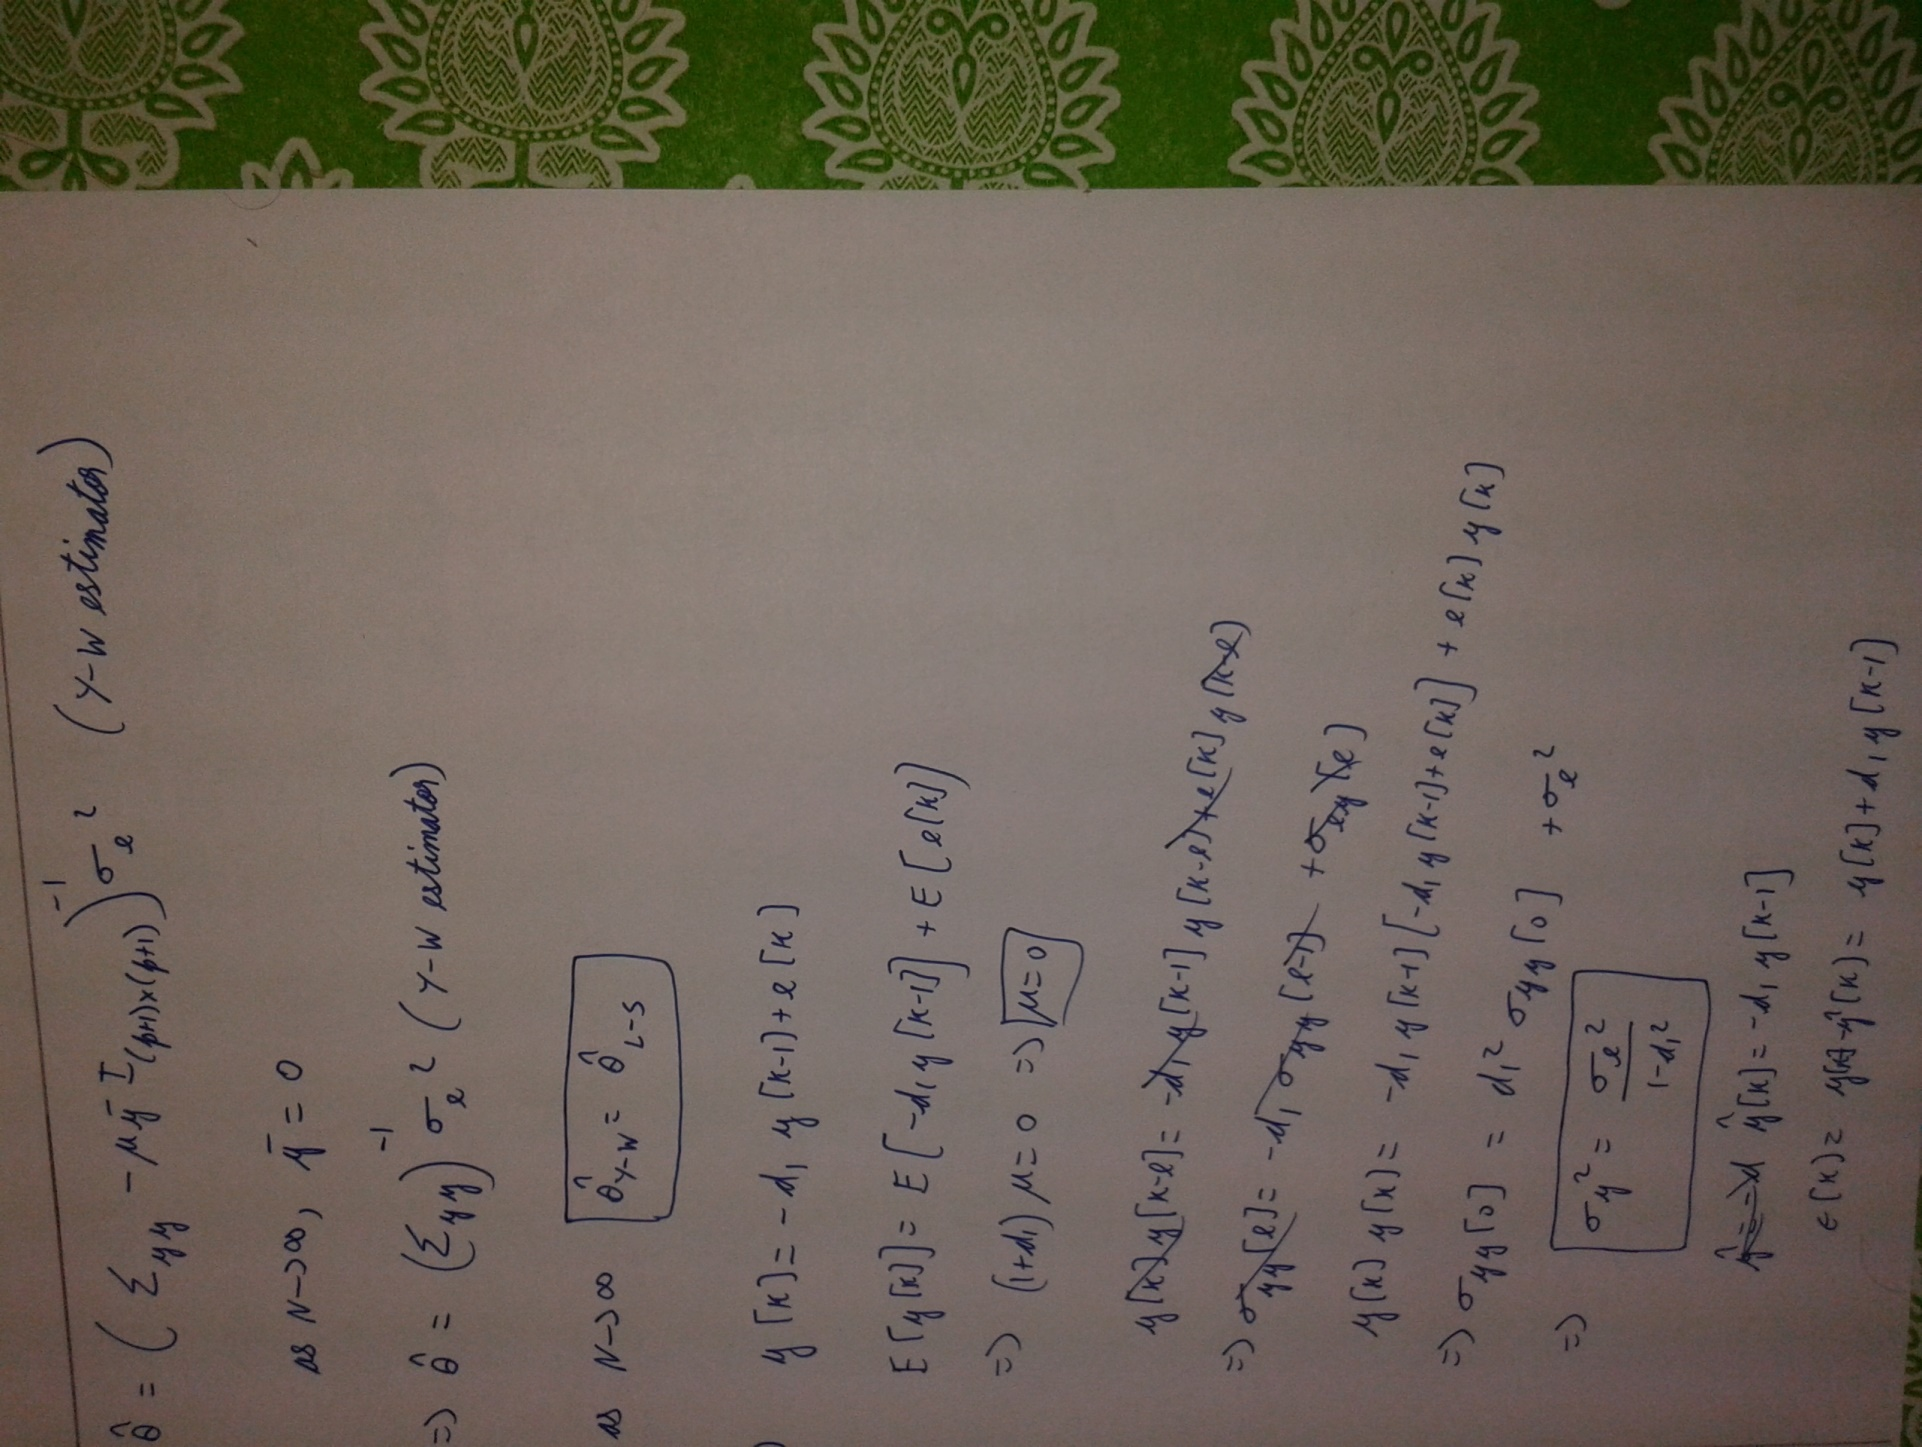 θ̂ = (Σ_yy - μȳ I_(p+1)×(p+1))^-1 σ_e^2 (Y-W estimator)
as N→∞, ȳ = 0
=) θ̂ = (Σ_yy)^-1 σ_e^2 (Y-W estimator)
as N→∞ θ̂_Y-W = θ̂_L-S
) y[k] = -d₁ y[k-1] + e[k]
E[y[k]] = E[-d₁ y[k-1]] + E[e[k]]
=) (1+d₁) μ = 0 =) μ=0
y[k] y[k-l] = -d₁ y[k-1] y[k-l] + e[k] y[k-l]
=) σ_yy[l] = -d₁ σ_yy[l-1] + σ_ey[l]
y[k] y[k] = -d₁ y[k-1] [-d₁ y[k-1]+e[k]] + e[k] y[k]
=) σ_yy[0] = d₁² σ_yy[0] + σ_e²
=) σ_y² = σ_e² / 1-d₁²
ŷ = -d ŷ[k] = -d₁ y[k-1]
ε[k] = y[k]-ŷ[k] = y[k]+d₁ y[k-1]